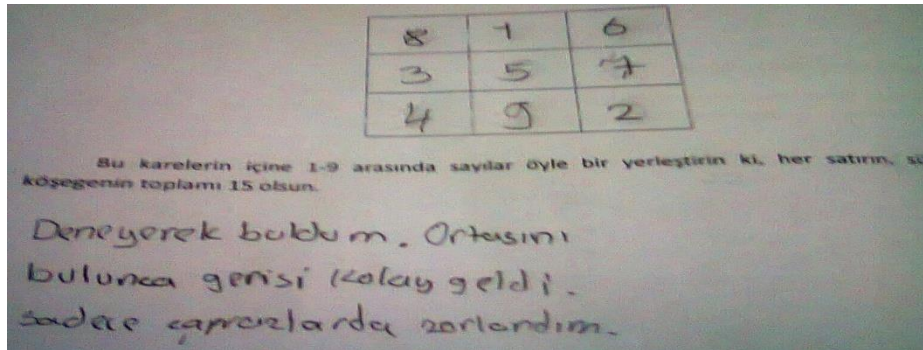 8 1 6
3 5 7
4 9 2
Bu karelerin içine 1-9 arasında sayılar öyle bir yerleştirin ki, her satırın,
köşegenin toplamı 15 olsun.
Deneyerek buldum. Ortasını
bulunca gerisi kolay geldi.
sadece çaprazlarda zorlandım.